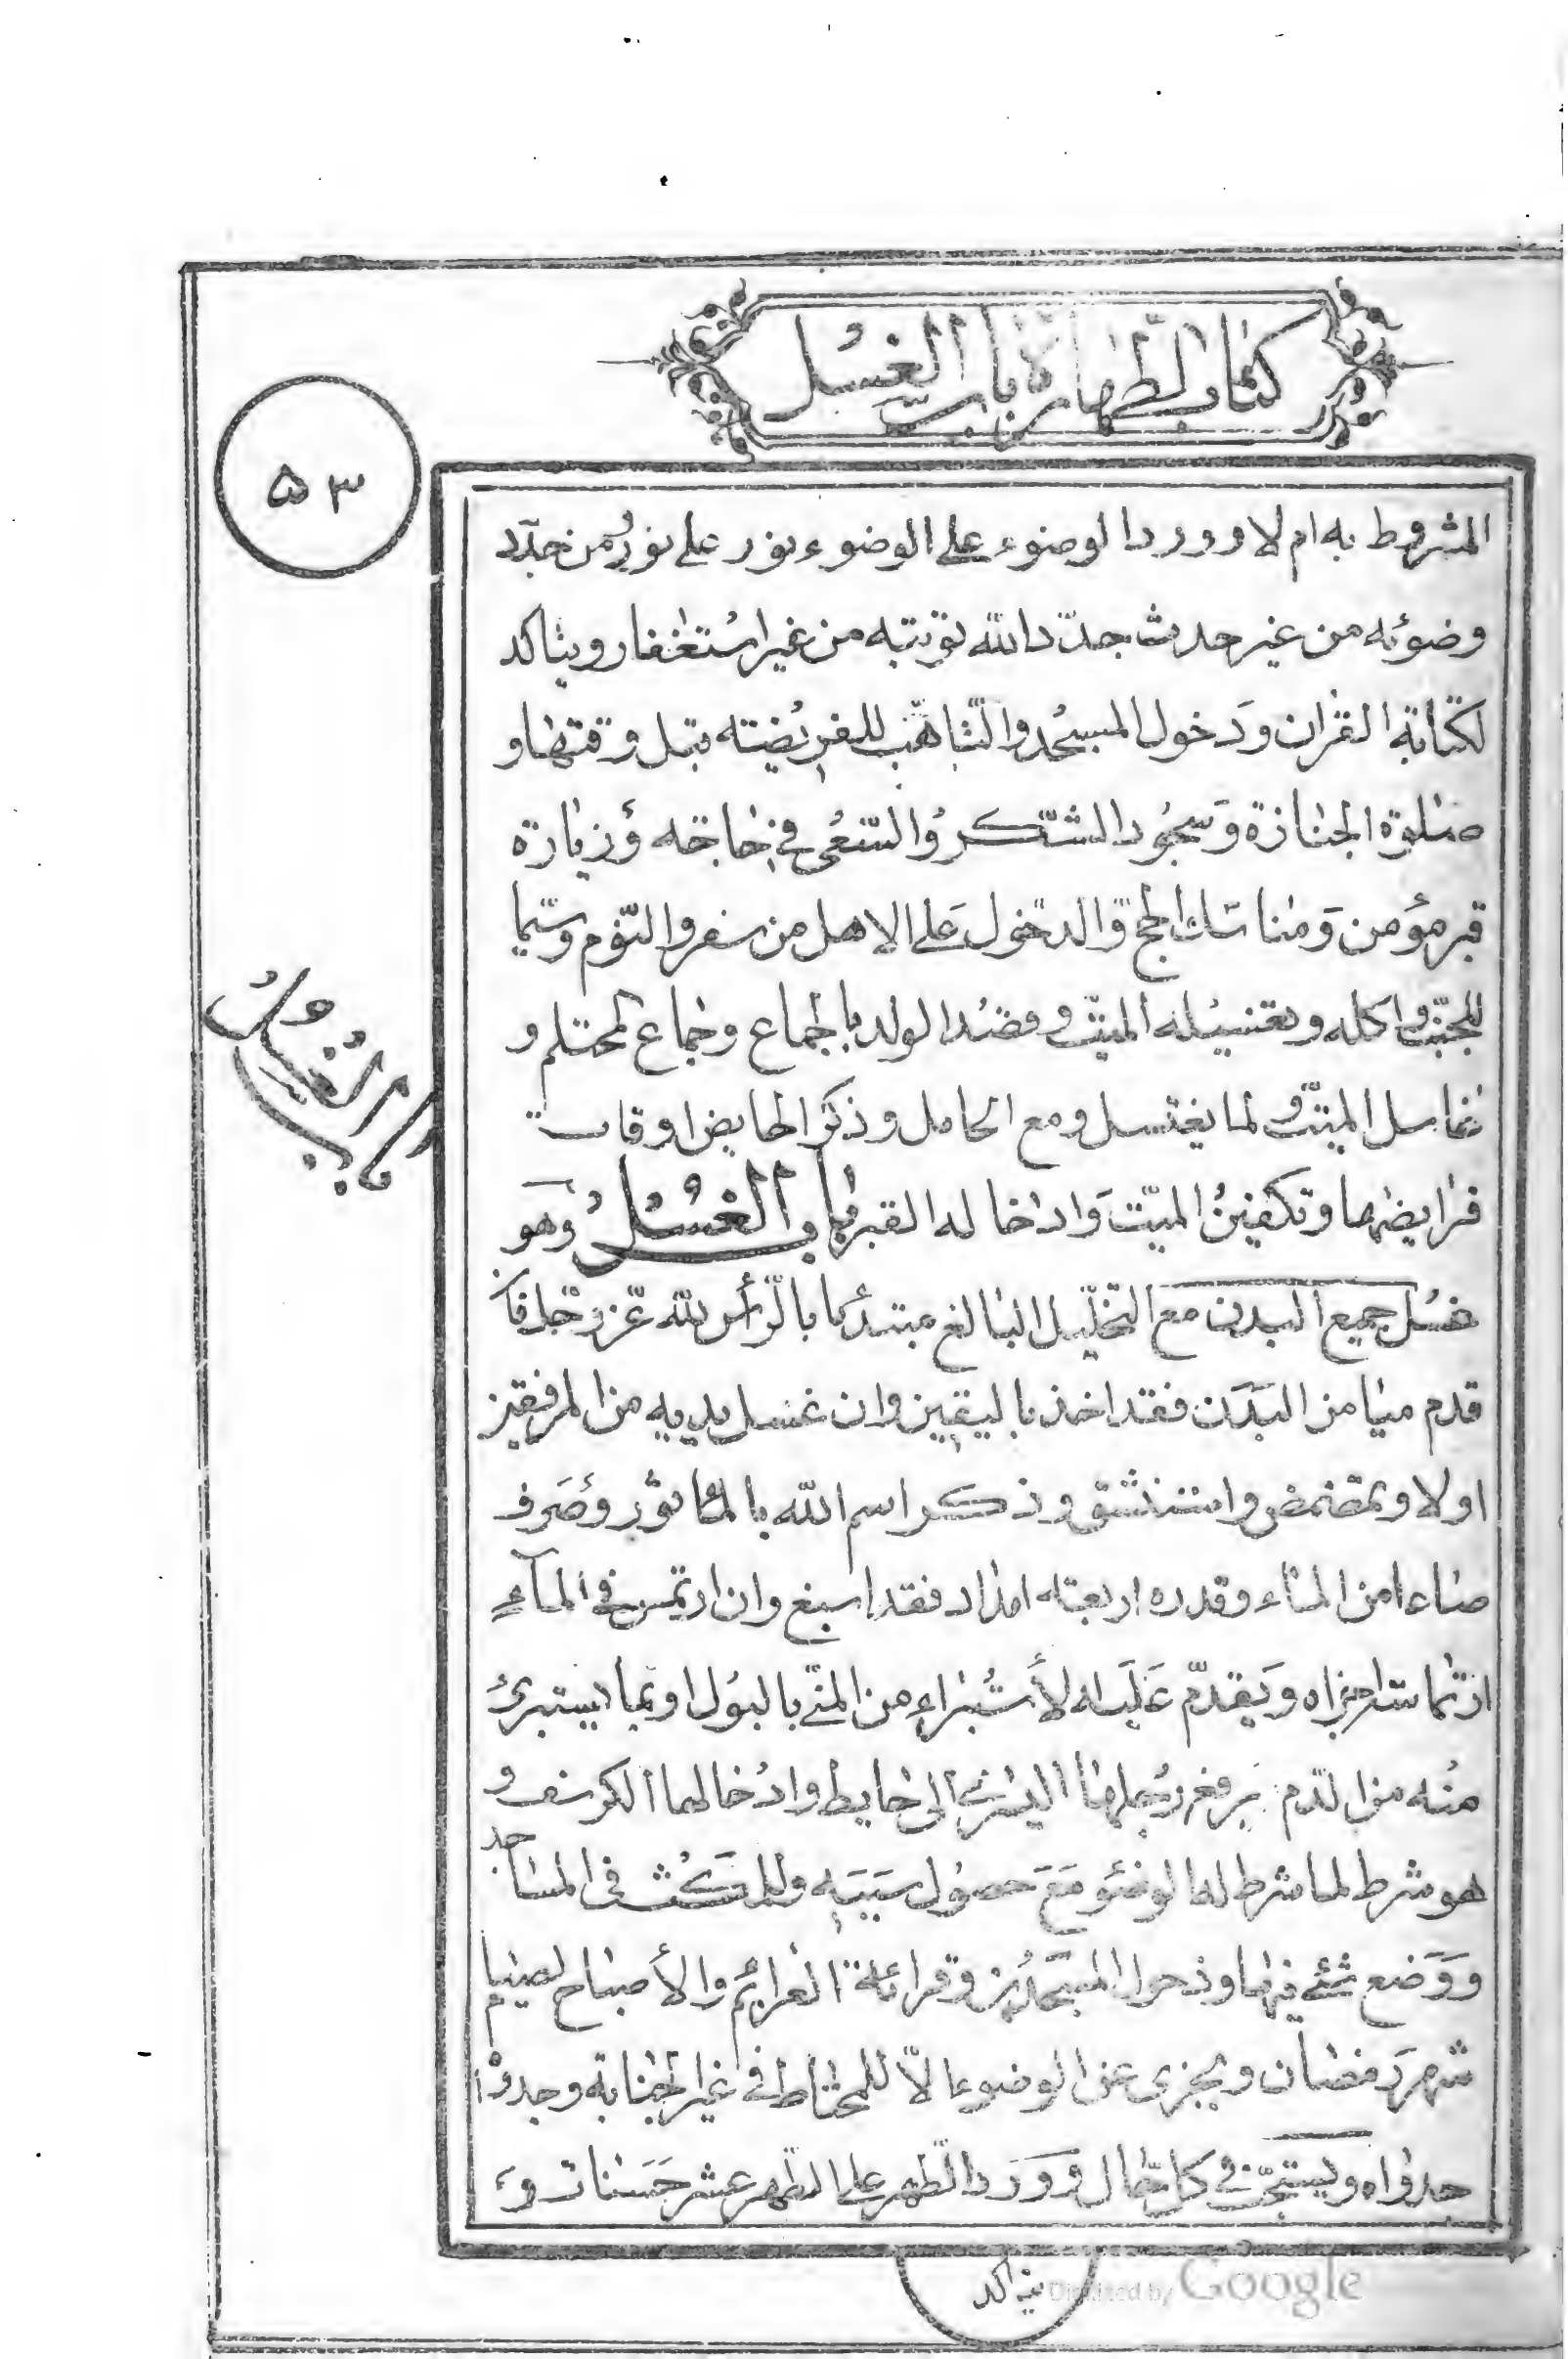 كتاب الطهارة باب الغسل
۵۳
المشروط به ام لا وورد الوضوء على الوضوء نور على نور من جدّد
وضوئه من غير حدث جدّد الله توبته من غير استغفار ويتاكد
لكتابة القران ودخول المسجد والتّاهّب للفريضته قبل وقتها و
صلوة الجنازة وسجود الشّكر والسّعى في حاجته وزيارة
قبر مؤمن ومناسك الحج والدخول على الاهل من سفر والنّوم وسيّما
للجنب واكله وتغسيله الميّت وقصد الولد باجماع وجماع لمحتلم و
غاسل الميّت ولما يغتسل ومع الحامل وذكر الحايض اوقات
فرايضها وتكفين الميّت وادخاله القبر باب الغسل وهو
باب الغسل
غسل جميع البدن مع التخليل البالغ مبتدئا بالرّأس لله عزّ وجل فان
قدم ميامن البدن فقد اخذ باليقين وان غسل يديه من المرفقين
اولا وتمضمض واستنشق وذكر اسم الله بالماثور وصرف
صاعا من الماء وقدره اربعته امداد فقد اسبغ وان ارتمس في المآء
ارتماسا اجزاه ويقدّم عليه الأستبراء من المنّى بالبول او بما يستبرئ
منه من الدّم برفع رجلها اليسرى الى حايط وادخالها الكرسف و
هو شرط لما شرط له الوضوء مع حصول سببه وللمكث في المساجد
ووضع شئ فيها ودخول المسجدين وقرائة العزايم والأصباح لصيام
شهر رمضان ويجزى عن الوضوء الاّ للمحتاط في غير الجنابة وجدوا
حدواه ويستحبّ في كل حال وورد الطّهر على الطّهر عشر حسنات و
يتاكد
Digitized by Google